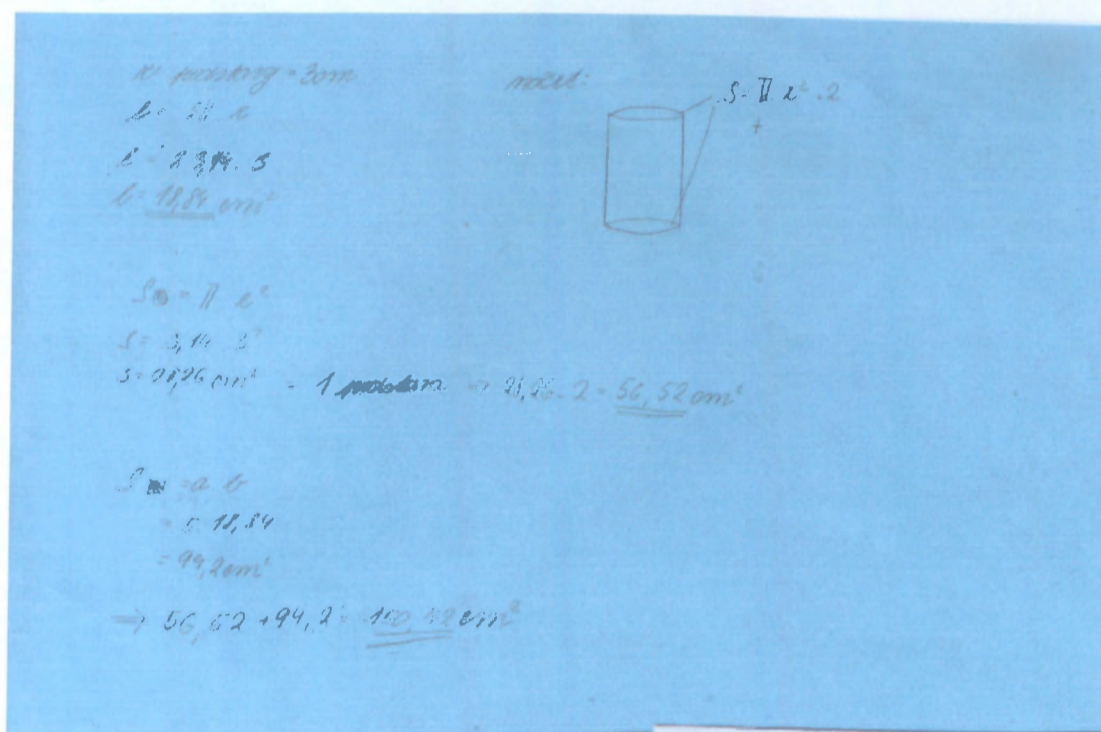 r podstavy = 3cm
náčrt:
S = π r² . 2
+
b = 2π r
b = 2 3,14 . 3
b = 18,84 cm²
S = π r²
S = 3,14 3²
S = 28,26 cm² - 1 podstava → 28,26 . 2 = 56,52 cm²
S = a b
= 5 18,84
= 94,2 cm²
⇒ 56,52 + 94,2 = cm²